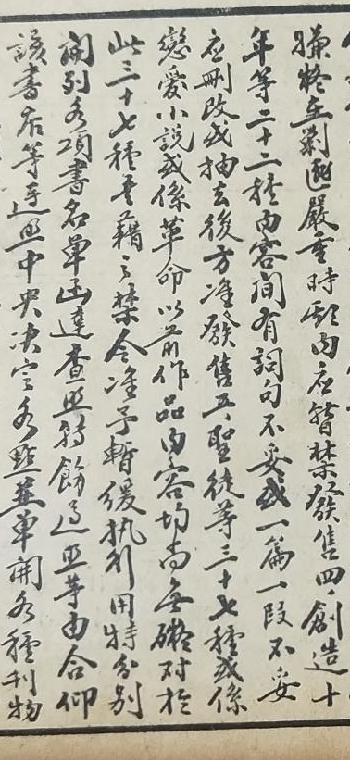 嫌在剿匪嚴重時期內应暫禁發售四、創造十
年等二十二種內容間有詞句不妥或一篇一段不妥
应刪改或抽去後方准發售五、聖徒等三十七種或係
戀愛小說或係革命以前作品內容均尚無礙对於
此三十七種書藉之禁令准予暫緩执行用特分别
開列各項書名單函達查照轉飭遵照等由合仰
該書店等遵照中央决定各點並單開各種刊物